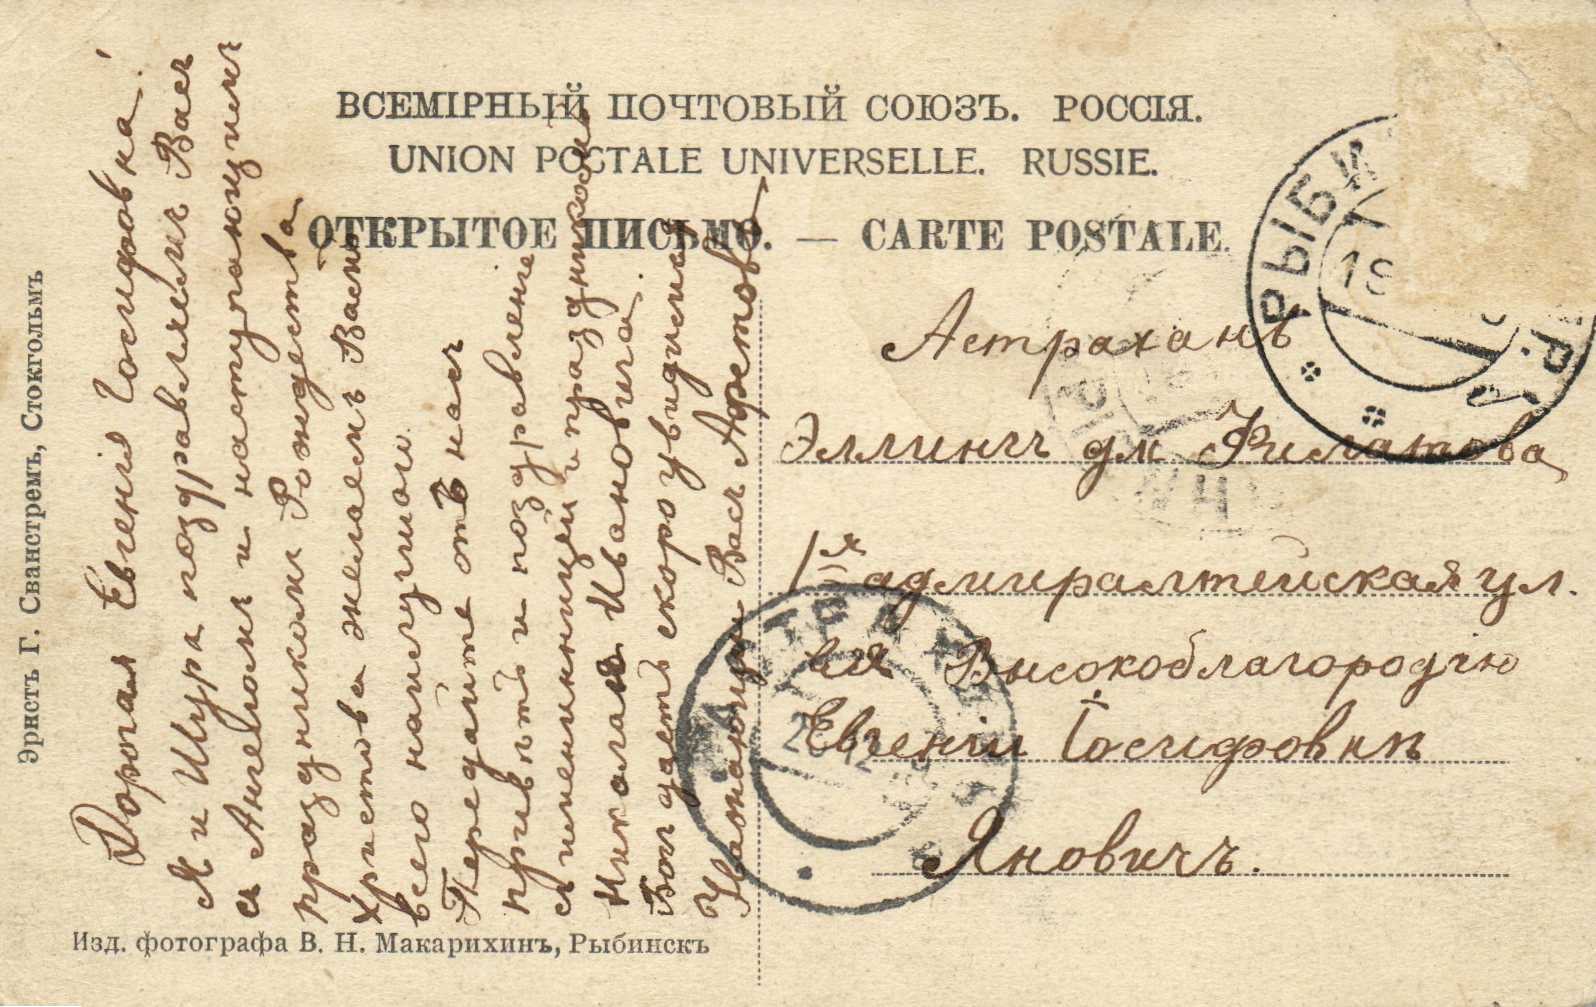 ВСЕМІРНЫЙ ПОЧТОВЫЙ СОЮЗЪ. РОССІЯ.
UNION POSTALE UNIVERSELLE. RUSSIE.
ОТКРЫТОЕ ПИСЬМО. — CARTE POSTALE.
Дорогая Евгенія Іосифовна!
Я и Шура поздравляемъ Васъ
съ Ангеломъ и наступающимъ
праздникомъ Рождества
Христова желаемъ Вамъ
всего наилучшаго.
Передайте отъ насъ
привѣтъ и поздравленіе
съ имянинницей и праздникомъ
Николая Ивановича.
Богъ дастъ скоро увидимся
Уважающая Васъ
Астрахань
Эллингъ дм Филатова
1ая адмиралтейская ул.
Ея Высокоблагородію
Евгеніи Іосифовнѣ
Яновичъ.
РЫБИ
18
АСТРАХАНЬ
12
Эрнстъ Г. Сванстремъ, Стокгольмъ
Изд. фотографа В. Н. Макарихинъ, Рыбинскъ